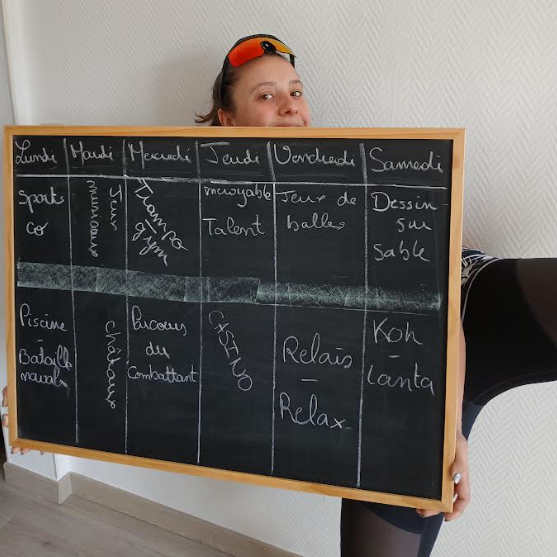 Lundi Mardi Mercredi Jeudi Vendredi Samedi
Sports
co
Jeux
musicaux
Trampo
gym
incroyable
Talent
Jeux de
balles
Dessin
sur
sable
Piscine
-
Bataille
navale
châteaux
Parcours
du
Combattant
CASINO
Relais
-
Relax
Koh
-
Lanta